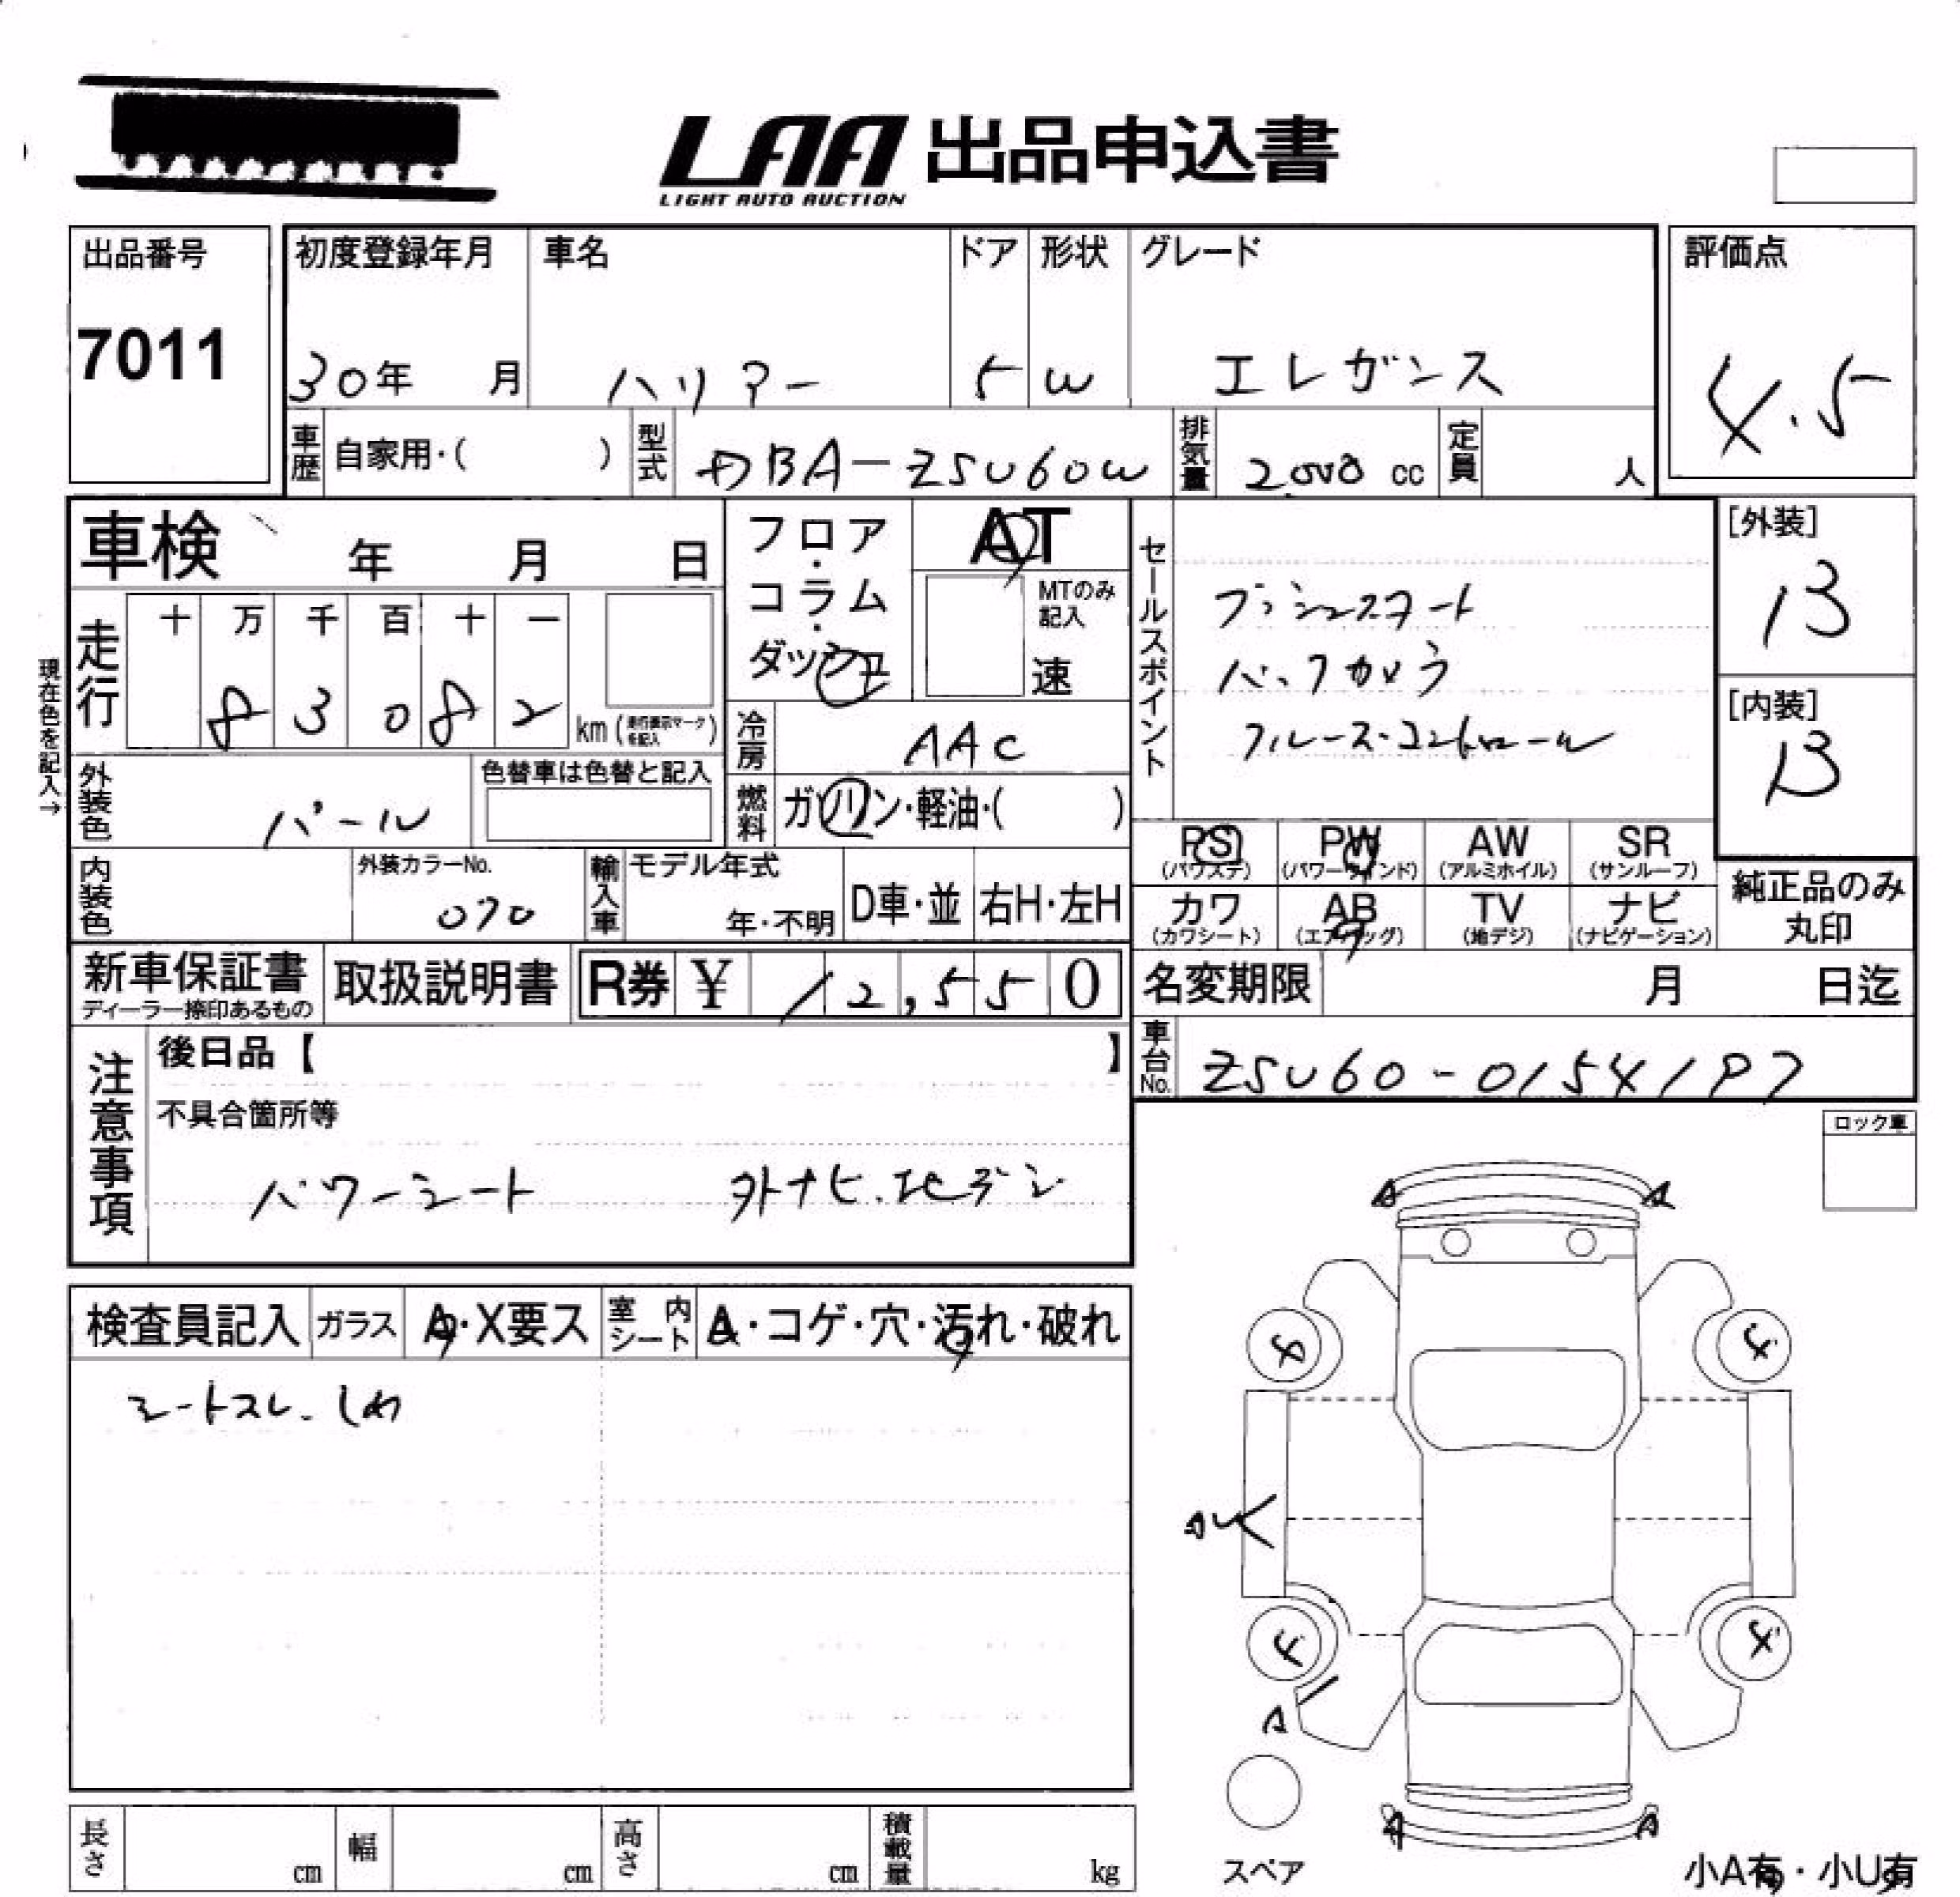 LAA 出品申込書
LIGHT AUTO AUCTION
出品番号
7011
初度登録年月
30年 月
車名
ハリアー
ドア
5
形状
W
グレード
エレガンス
評価点
4.5
車歴 自家用・( )
型式 DBA-ZSU60W
排気量 2,000 cc
定員 人
車検 年 月 日
フロア・コラム・ダッシュ
AT
MTのみ記入
速
セールスポイント
プッシュスタート
バックカメラ
クルーズ・コントロール
[外装]
B
[内装]
B
現在色を記入→
走行
十 万 千 百 十 一
8 3 0 8 2
km (走行表示マークを記入)
冷房 AAC
外装色 パール
色替車は色替と記入
燃料 ガソリン・軽油・( )
PS (パワステ)
PW (パワーウインド)
AW (アルミホイル)
SR (サンルーフ)
カワ (カワシート)
AB (エアバッグ)
TV (地デジ)
ナビ (ナビゲーション)
純正品のみ丸印
内装色
外装カラーNo.
070
輸入車
モデル年式
年・不明
D車・並
右H・左H
新車保証書
ディーラー捺印あるもの
取扱説明書
R券 ¥ 12,550
名変期限 月 日迄
車台No. ZSU60-0154197
注意事項
後日品【 】
不具合箇所等
パワーシート 外ナビ.地デジ
ロック車
検査員記入
ガラス A・X要ス
室内シート A・コゲ・穴・汚れ・破れ
シートスレ.しわ
A
A
A
A
A
スペア
長さ cm
幅 cm
高さ cm
積載量 kg
小A有・小U有